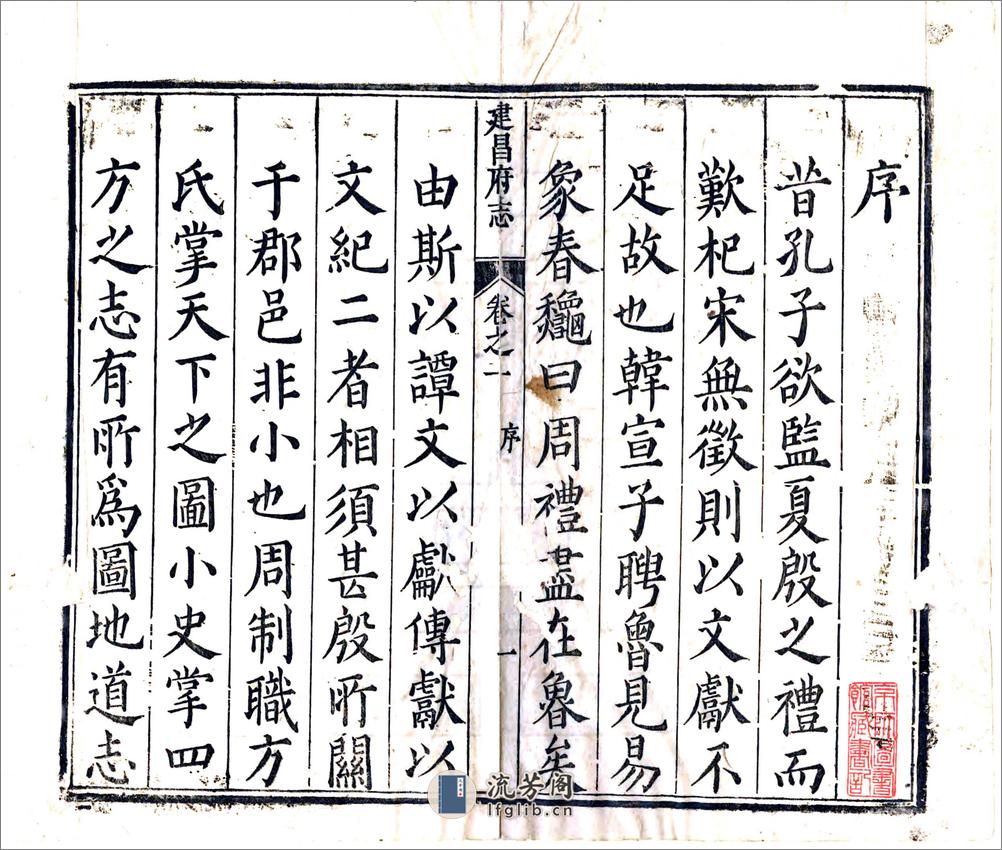 序
昔孔子欲監夏殷之禮而
歎杞宋無徵則以文獻不
足故也韓宣子聘魯見易
象春龝曰周禮盡在魯矣
建昌府志 卷之一 序 一
由斯以譚文以獻傳獻以
文紀二者相須甚殷所關
于郡邑非小也周制職方
氏掌天下之圖小史掌四
方之志有所為圖地道志
流芳阁
lfglib.cn